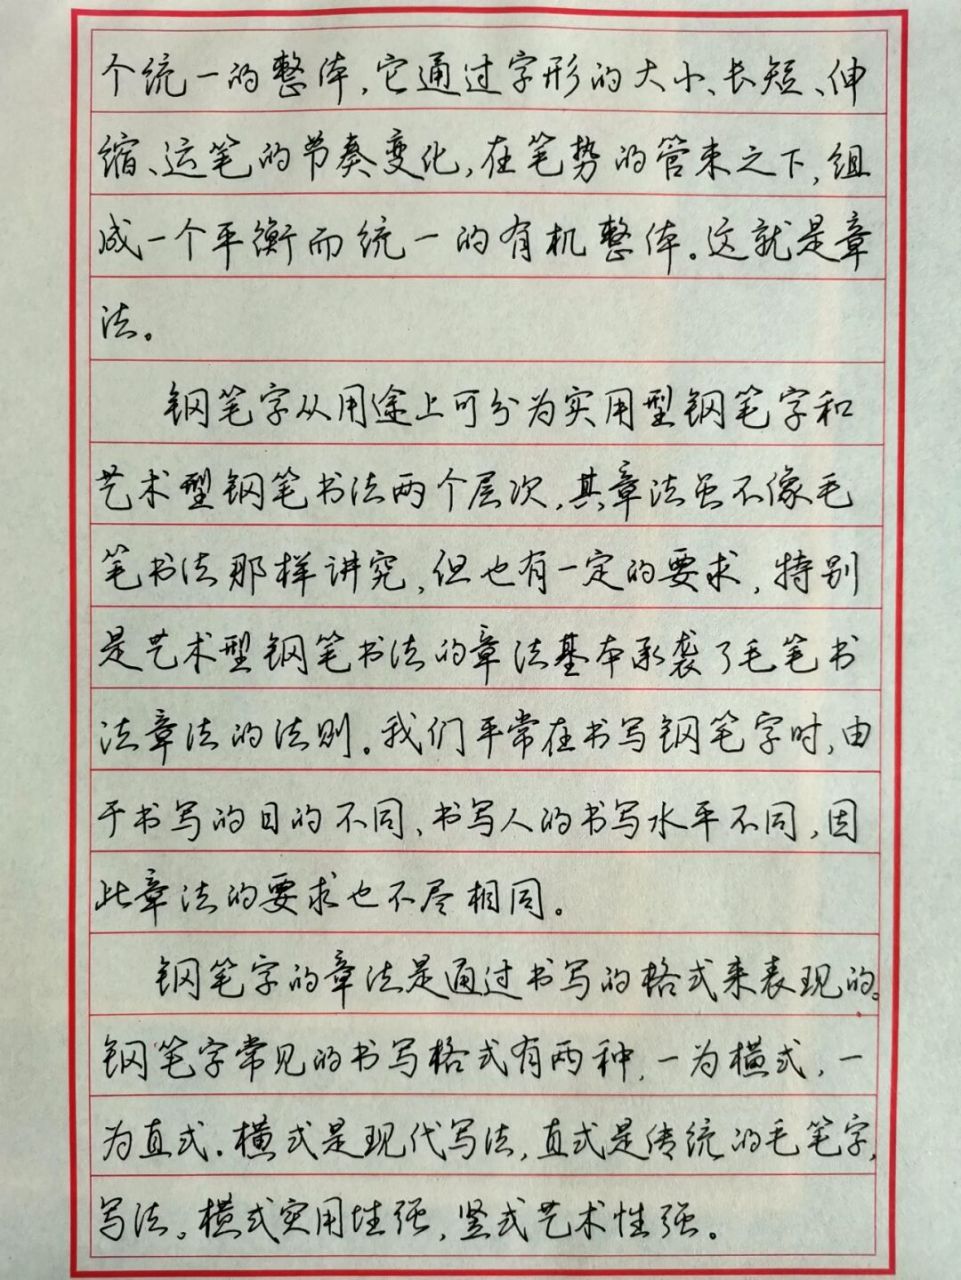 个统一的整体，它通过字形的大小、长短、伸
缩、运笔的节奏变化，在笔势的管束之下，组
成一个平衡而统一的有机整体。这就是章
法。
钢笔字从用途上可分为实用型钢笔字和
艺术型钢笔书法两个层次，其章法虽不像毛
笔书法那样讲究，但也有一定的要求，特别
是艺术型钢笔书法的章法基本承袭了毛笔书
法章法的法则。我们平常在书写钢笔字时，由
于书写的目的不同、书写人的书写水平不同，因
此章法的要求也不尽相同。
钢笔字的章法是通过书写的格式来表现的。
钢笔字常见的书写格式有两种，一为横式，一
为直式。横式是现代写法，直式是传统的毛笔字，
写法。横式实用性强，竖式艺术性强。